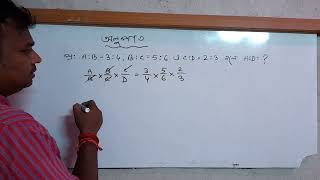 অনুপাত
প্র: A:B = 3:4, B:C = 5:6 ও C:D = 2:3 হলে A:D = ?
A/B × B/C × C/D = 3/4 × 5/6 × 2/3